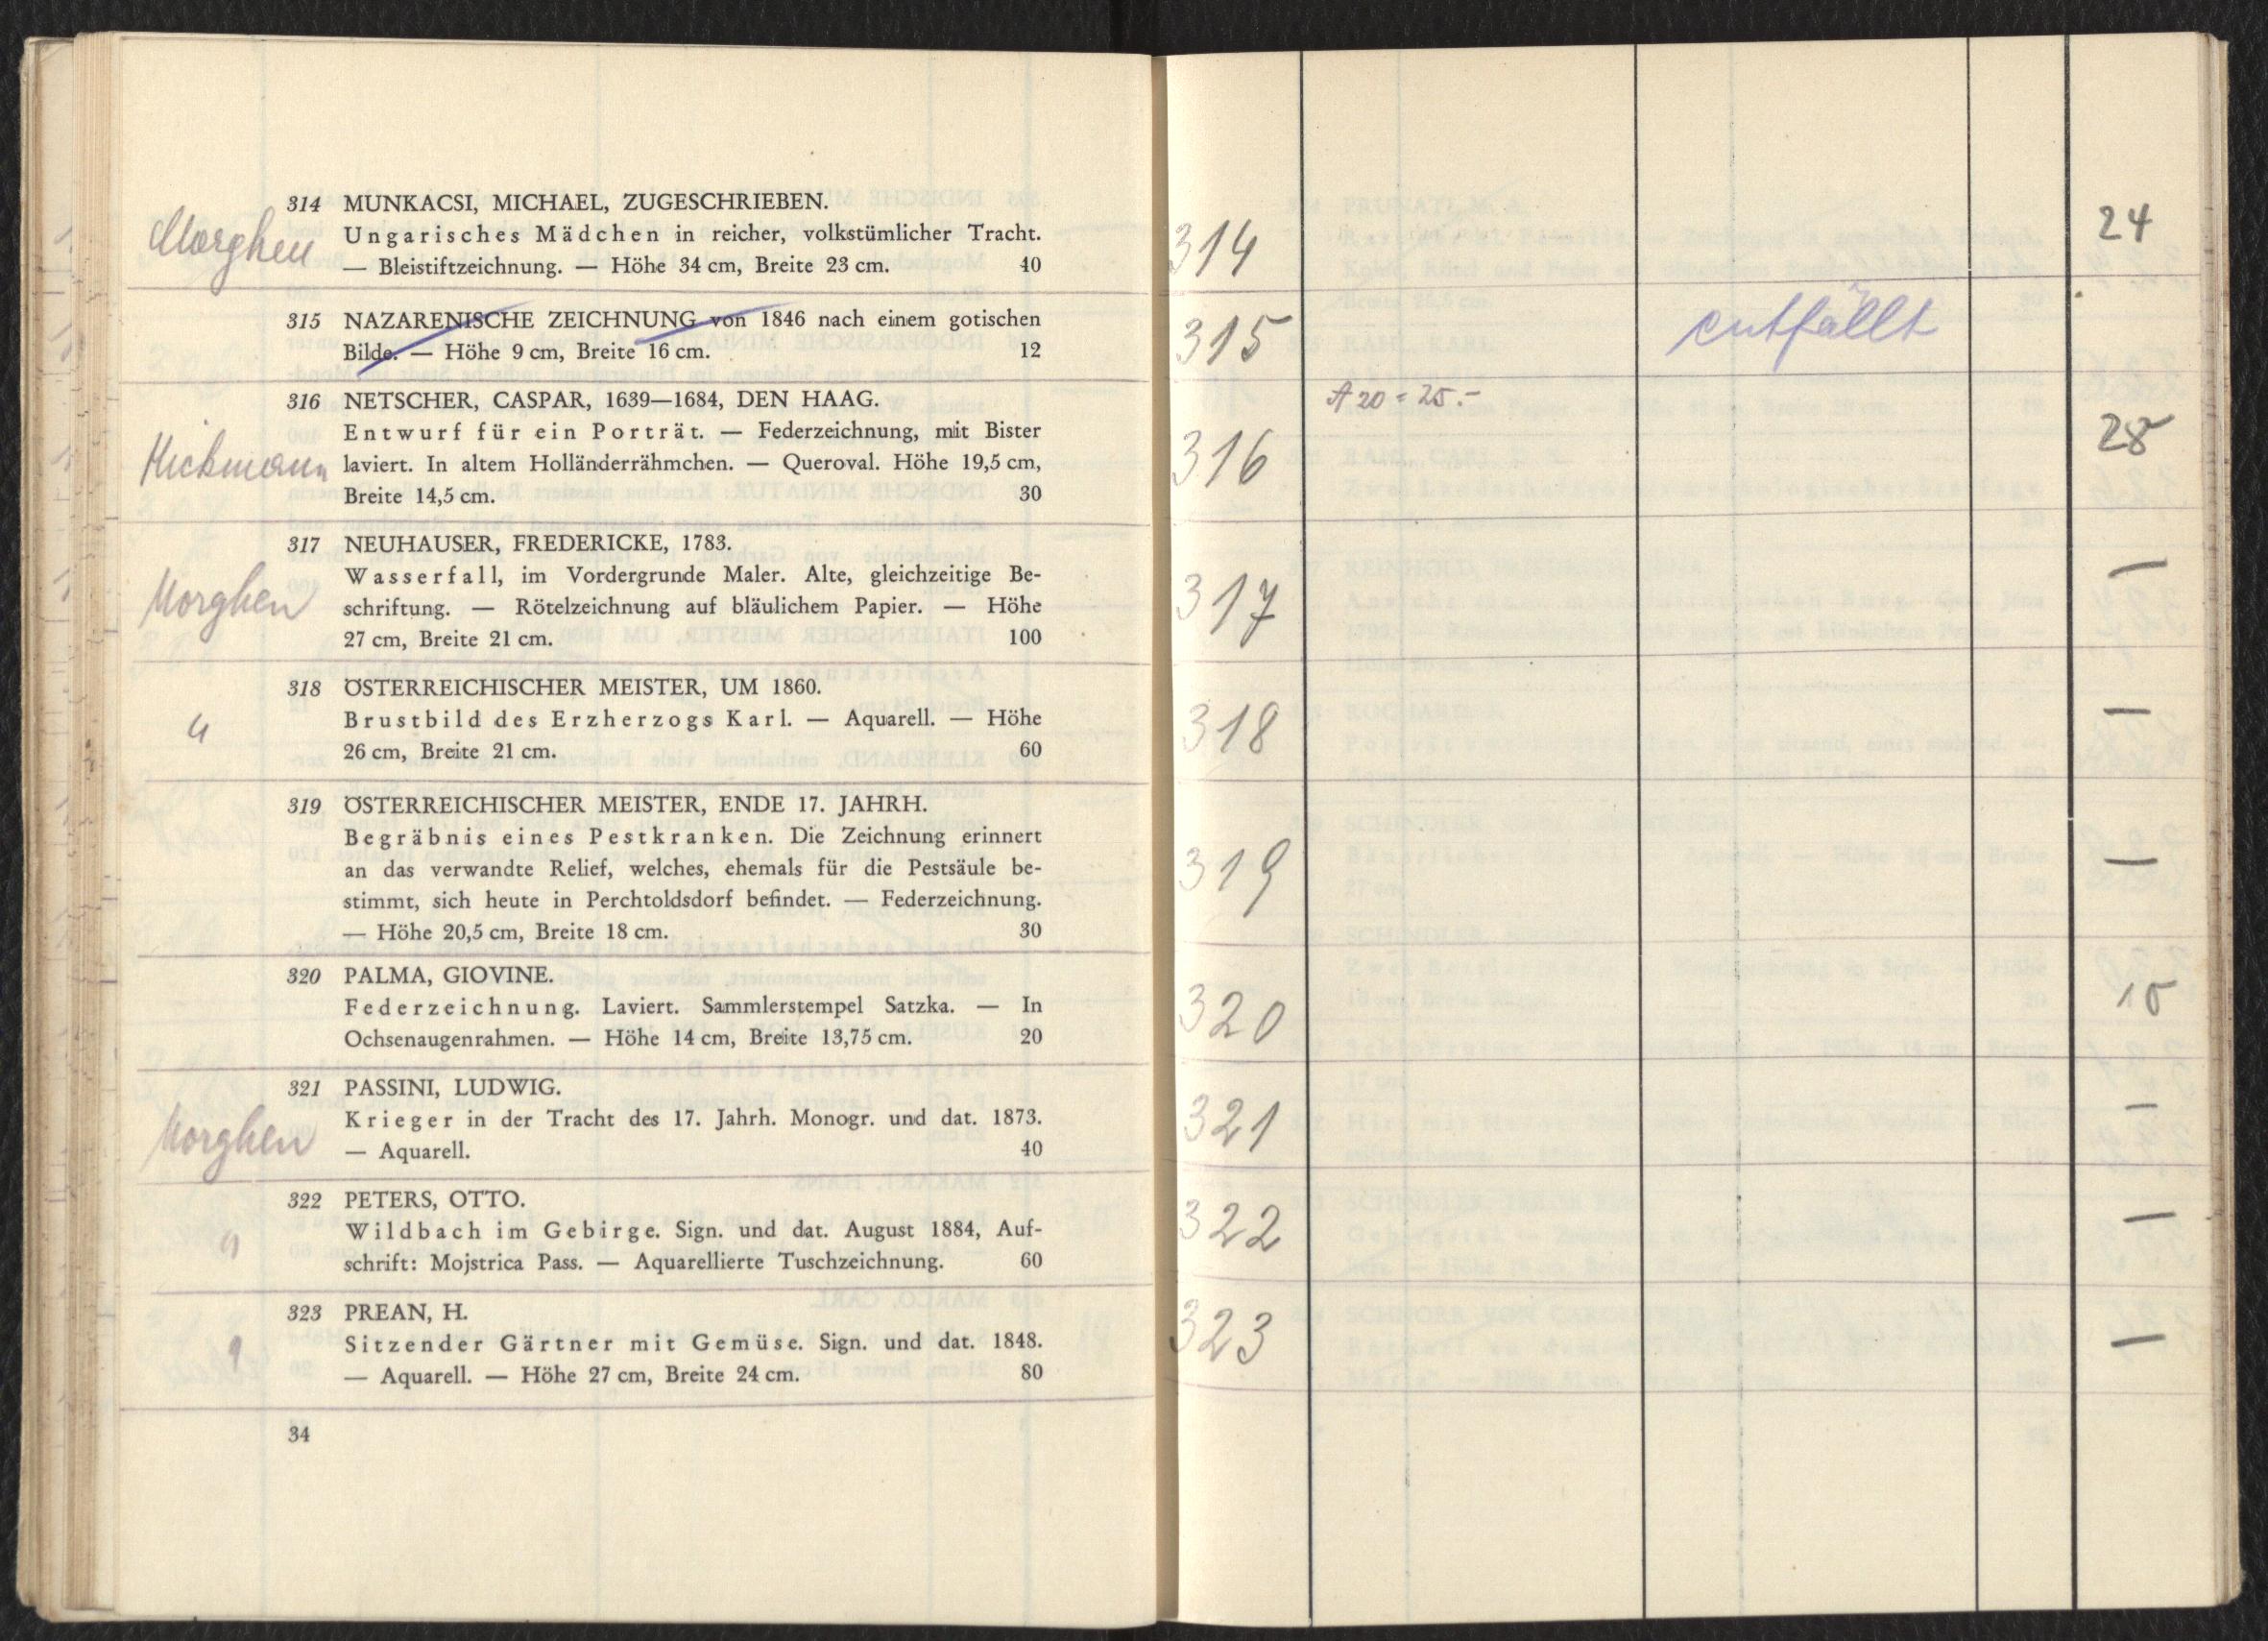 314 MUNKACSI, MICHAEL, ZUGESCHRIEBEN.
Morghen
Ungarisches Mädchen in reicher, volkstümlicher Tracht.
— Bleistiftzeichnung. — Höhe 34 cm, Breite 23 cm. 40
315 NAZARENISCHE ZEICHNUNG von 1846 nach einem gotischen
Bilde. — Höhe 9 cm, Breite 16 cm. 12
316 NETSCHER, CASPAR, 1639—1684, DEN HAAG.
Entwurf für ein Porträt. — Federzeichnung, mit Bister
Hickmann
laviert. In altem Holländerrähmchen. — Queroval. Höhe 19,5 cm,
Breite 14,5 cm. 30
317 NEUHAUSER, FREDERICKE, 1783.
Wasserfall, im Vordergrunde Maler. Alte, gleichzeitige Be-
Morghen
schriftung. — Rötelzeichnung auf bläulichem Papier. — Höhe
27 cm, Breite 21 cm. 100
318 ÖSTERREICHISCHER MEISTER, UM 1860.
"
Brustbild des Erzherzogs Karl. — Aquarell. — Höhe
26 cm, Breite 21 cm. 60
319 ÖSTERREICHISCHER MEISTER, ENDE 17. JAHRH.
Begräbnis eines Pestkranken. Die Zeichnung erinnert
an das verwandte Relief, welches, ehemals für die Pestsäule be-
stimmt, sich heute in Perchtoldsdorf befindet. — Federzeichnung.
— Höhe 20,5 cm, Breite 18 cm. 30
320 PALMA, GIOVINE.
Federzeichnung. Laviert. Sammlerstempel Satzka. — In
Ochsenaugenrahmen. — Höhe 14 cm, Breite 13,75 cm. 20
321 PASSINI, LUDWIG.
Morghen
Krieger in der Tracht des 17. Jahrh. Monogr. und dat. 1873.
— Aquarell. 40
322 PETERS, OTTO.
"
Wildbach im Gebirge. Sign. und dat. August 1884, Auf-
schrift: Mojstrica Pass. — Aquarellierte Tuschzeichnung. 60
323 PREAN, H.
Sitzender Gärtner mit Gemüse. Sign. und dat. 1848.
— Aquarell. — Höhe 27 cm, Breite 24 cm. 80
34
314 24
315 entfällt
A 20 = 25.-
316 28
317 —
318 —
319 —
320 15
321 —
322 —
323 —